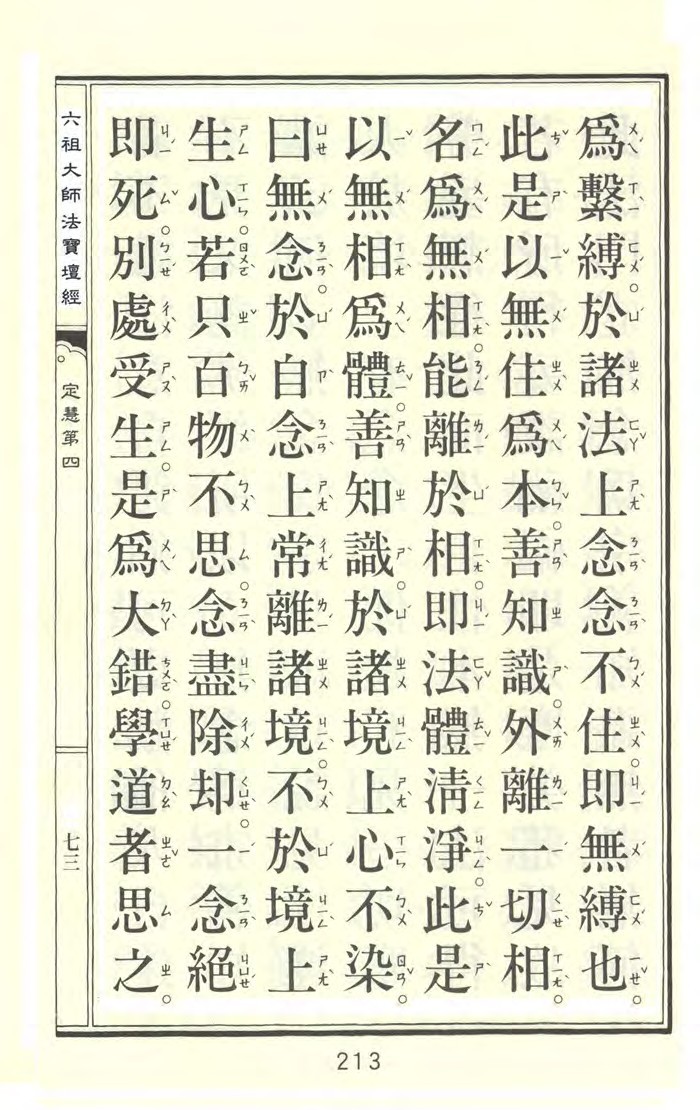 爲繫縛。於諸法上念念不住。即無縛也。
此是以無住爲本。善知識。外離一切相。
名爲無相。能離於相。即法體清淨。此是
以無相爲體。善知識。於諸境上心不染。
曰無念。於自念上常離諸境。不於境上
生心。若只百物不思。念盡除却。一念絕
即死。別處受生。是爲大錯。學道者思之。
六祖大師法寶壇經
定慧第四
七三
213